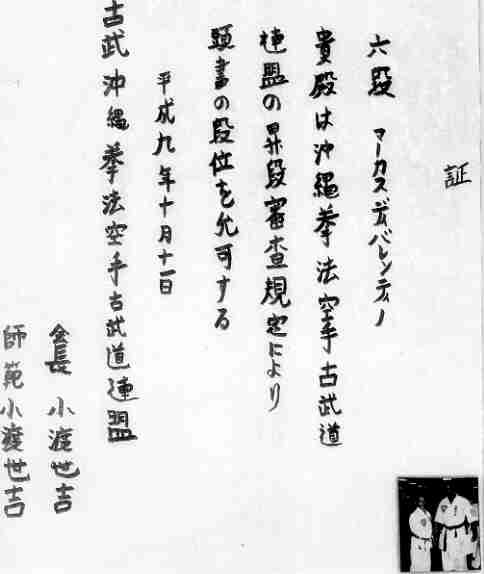 証
六段 マーカスディバレンティノ
貴殿は沖縄拳法空手古武道
連盟の昇段審査規定により
頭書の段位を允可する
平成九年十月十一日
古武沖縄拳法空手古武道連盟
会長 小渡世吉
師範 小渡世吉